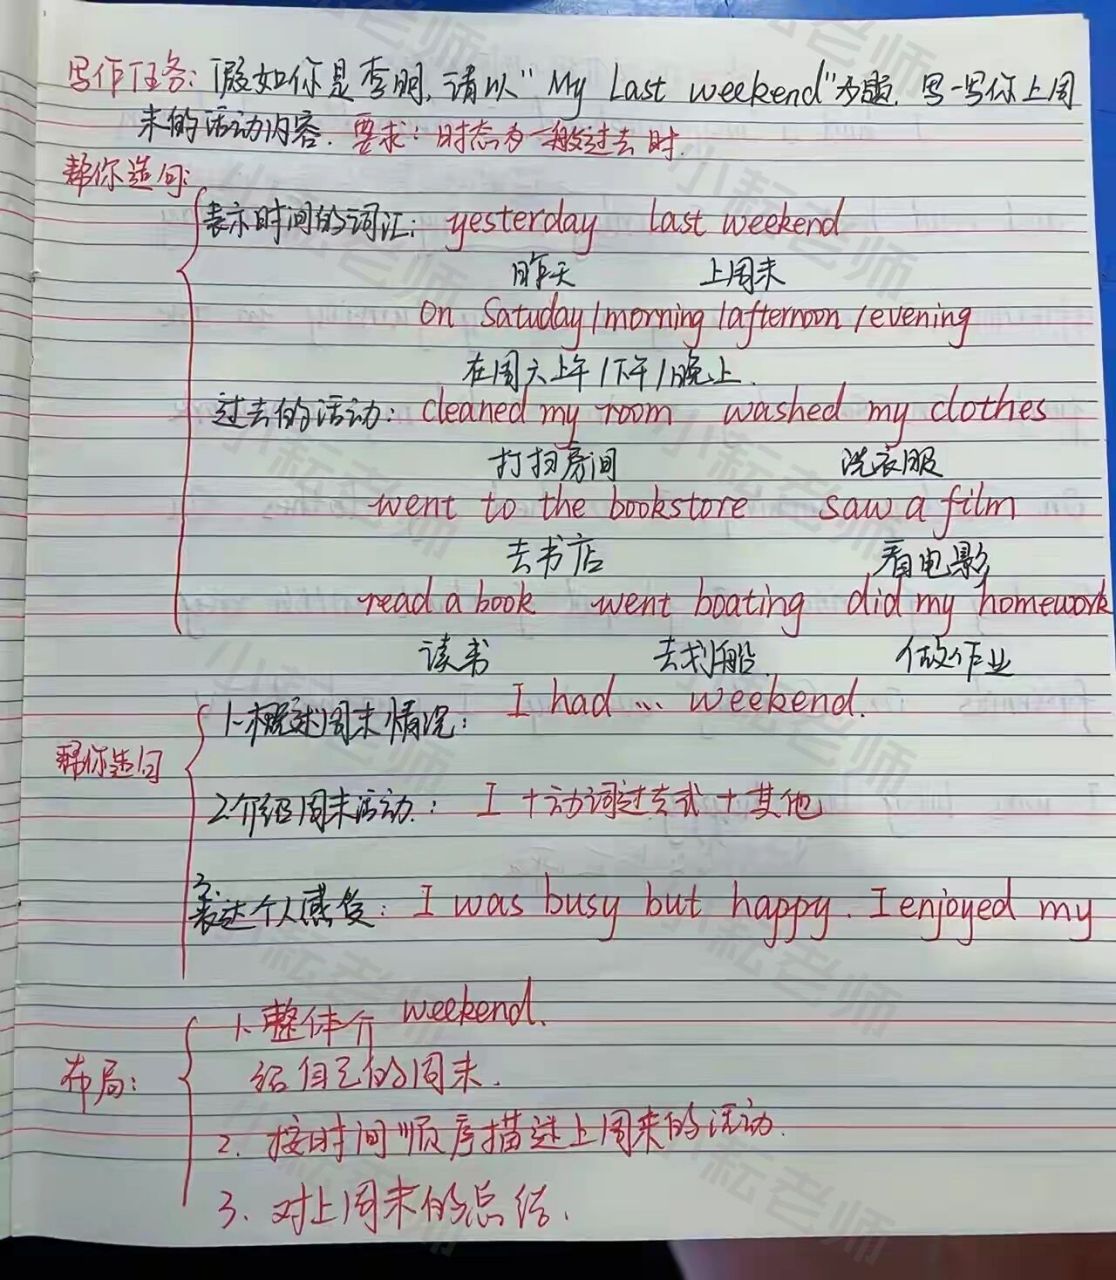 写作任务: 假如你是李明, 请以“My Last weekend”为题, 写一写你上周
末的活动内容. 要求: 时态为一般过去时.
帮你造句:
表示时间的词汇: yesterday last weekend
昨天 上周末
On Satuday/morning/afternoon/evening
在周六上午/下午/晚上.
过去的活动: cleaned my room washed my clothes
打扫房间 洗衣服
went to the bookstore saw a film
去书店 看电影
read a book went boating did my homework
读书 去划船 做作业
帮你造句
1.概述周末情况: I had ... weekend.
2.介绍周末活动: I +动词过去式+其他
3.表达个人感受: I was busy but happy. I enjoyed my
weekend.
布局:
1.整体介
绍自己的周末.
2. 按时间顺序描述上周末的活动.
3. 对上周末的总结.
小耘老师